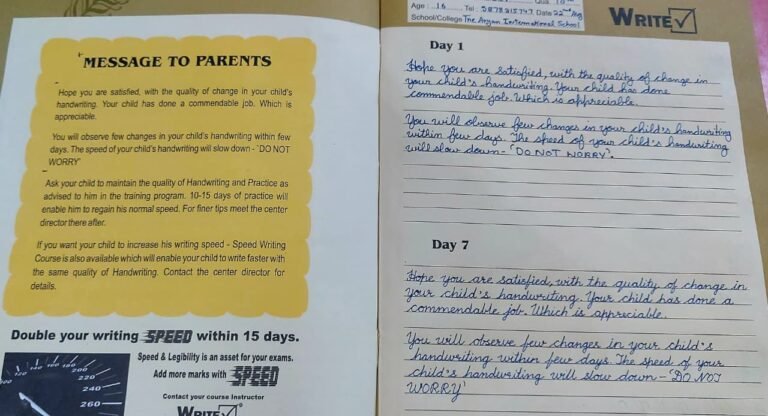 MESSAGE TO PARENTS
Hope you are satisfied, with the quality of change in your child's
handwriting. Your child has done a commendable job. Which is
appreciable.
You will observe few changes in your child's handwriting within few
days. The speed of your child's handwriting will slow down - `DO NOT
WORRY'
Ask your child to maintain the quality of Handwriting and Practice as
advised to him in the training program. 10-15 days of practice will
enable him to regain his normal speed. For finer tips meet the center
director there after.
If you want your child to increase his writing speed - Speed Writing
Course is also available which will enable your child to write faster with
the same quality of Handwriting. Contact the center director for
details.
Double your writing SPEED within 15 days.
Speed & Legibility is an asset for your exams.
Add more marks with SPEED
Contact your course Instructor
WRITE
120 140 160 180 200
220
240
260
Age : 16 Tel : Date 22nd May
School/College The Aryan International School
WRITE
Day 1
Hope you are satisfied, with the quality of change in
your child's handwriting. Your child has done
commendable job. Which is appreciable.
You will observe few changes in your child's handwriting
within few days. The speed of your child's handwriting
will slow down - 'DO NOT WORRY'.
Day 7
Hope you are satisfied, with the quality of change in
your child's handwriting. Your child has done a
commendable job. Which is appreciable.
You will observe few changes in your child's
handwriting within few days. The speed of your
child's handwriting will slow down - 'DO NOT
WORRY'